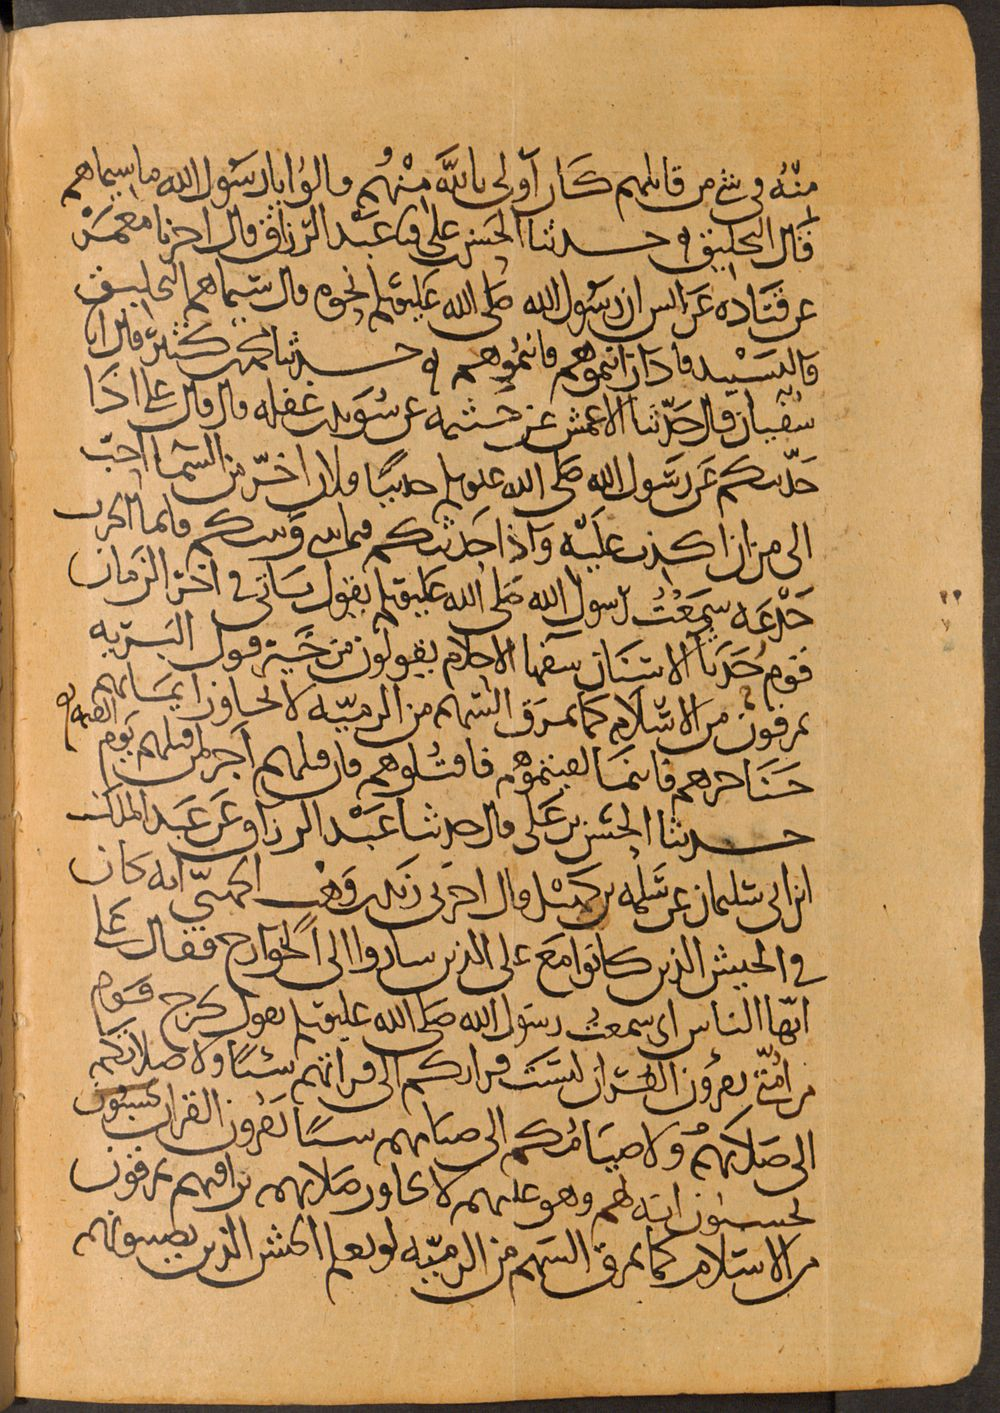 منه في شي من قاتلهم كان أولى بالله منهم قالوا يا رسول الله ما سيماهم
قال التحليق حدثنا الحسن بن علي نا عبد الرزاق قال اخبرنا معمر
عن قتاده عن انس ان رسول الله صلى الله عليه وسلم نحوه قال سيماهم التحليق
والتسبيد فاذا رايتموهم فانيموهم حدثنا محمد بن كثير قال انا
سفيان قال حدثنا الاعمش عن خيثمه عن سويد بن غفله قال قال علي اذا
حدثتكم عن رسول الله صلى الله عليه وسلم حديثا فلان اخر من السما احب
الى من ان اكذب عليه واذا حدثتكم فيما بيني وبينكم فانما الحرب
خدعه سمعت رسول الله صلى الله عليه وسلم يقول ياتي في اخر الزمان
قوم حدثا الاسنان سفها الاحلام يقولون من خير قول البريه
يمرقون من الاسلام كما يمرق السهم من الرميه لا يجاوز ايمانهم
حناجرهم فاينما لقيتموهم فاقتلوهم فان قتلهم اجر لمن قتلهم يوم القيمه
حدثنا الحسن بن علي قال حدثنا عبد الرزاق عن عبد الملك
ابن ابي سليمان عن سلمه بن كهيل قال اخبرني زيد بن وهب الجهني انه كان
في الجيش الذين كانوا مع علي الذين ساروا الى الخوارج فقال علي
ايها الناس اني سمعت رسول الله صلى الله عليه وسلم يقول يخرج قوم
من امتي يقرون القران ليست قراتكم الى قراتهم شيئا ولا صلاتكم
الى صلاتهم ولا صيامكم الى صيامهم شيئا يقرون القران
يحسبون انه لهم وهو عليهم لا تجاوز صلاتهم تراقيهم يمرقون
من الاسلام كما يمرق السهم من الرميه لو يعلم الجيش الذين يصيبونهم